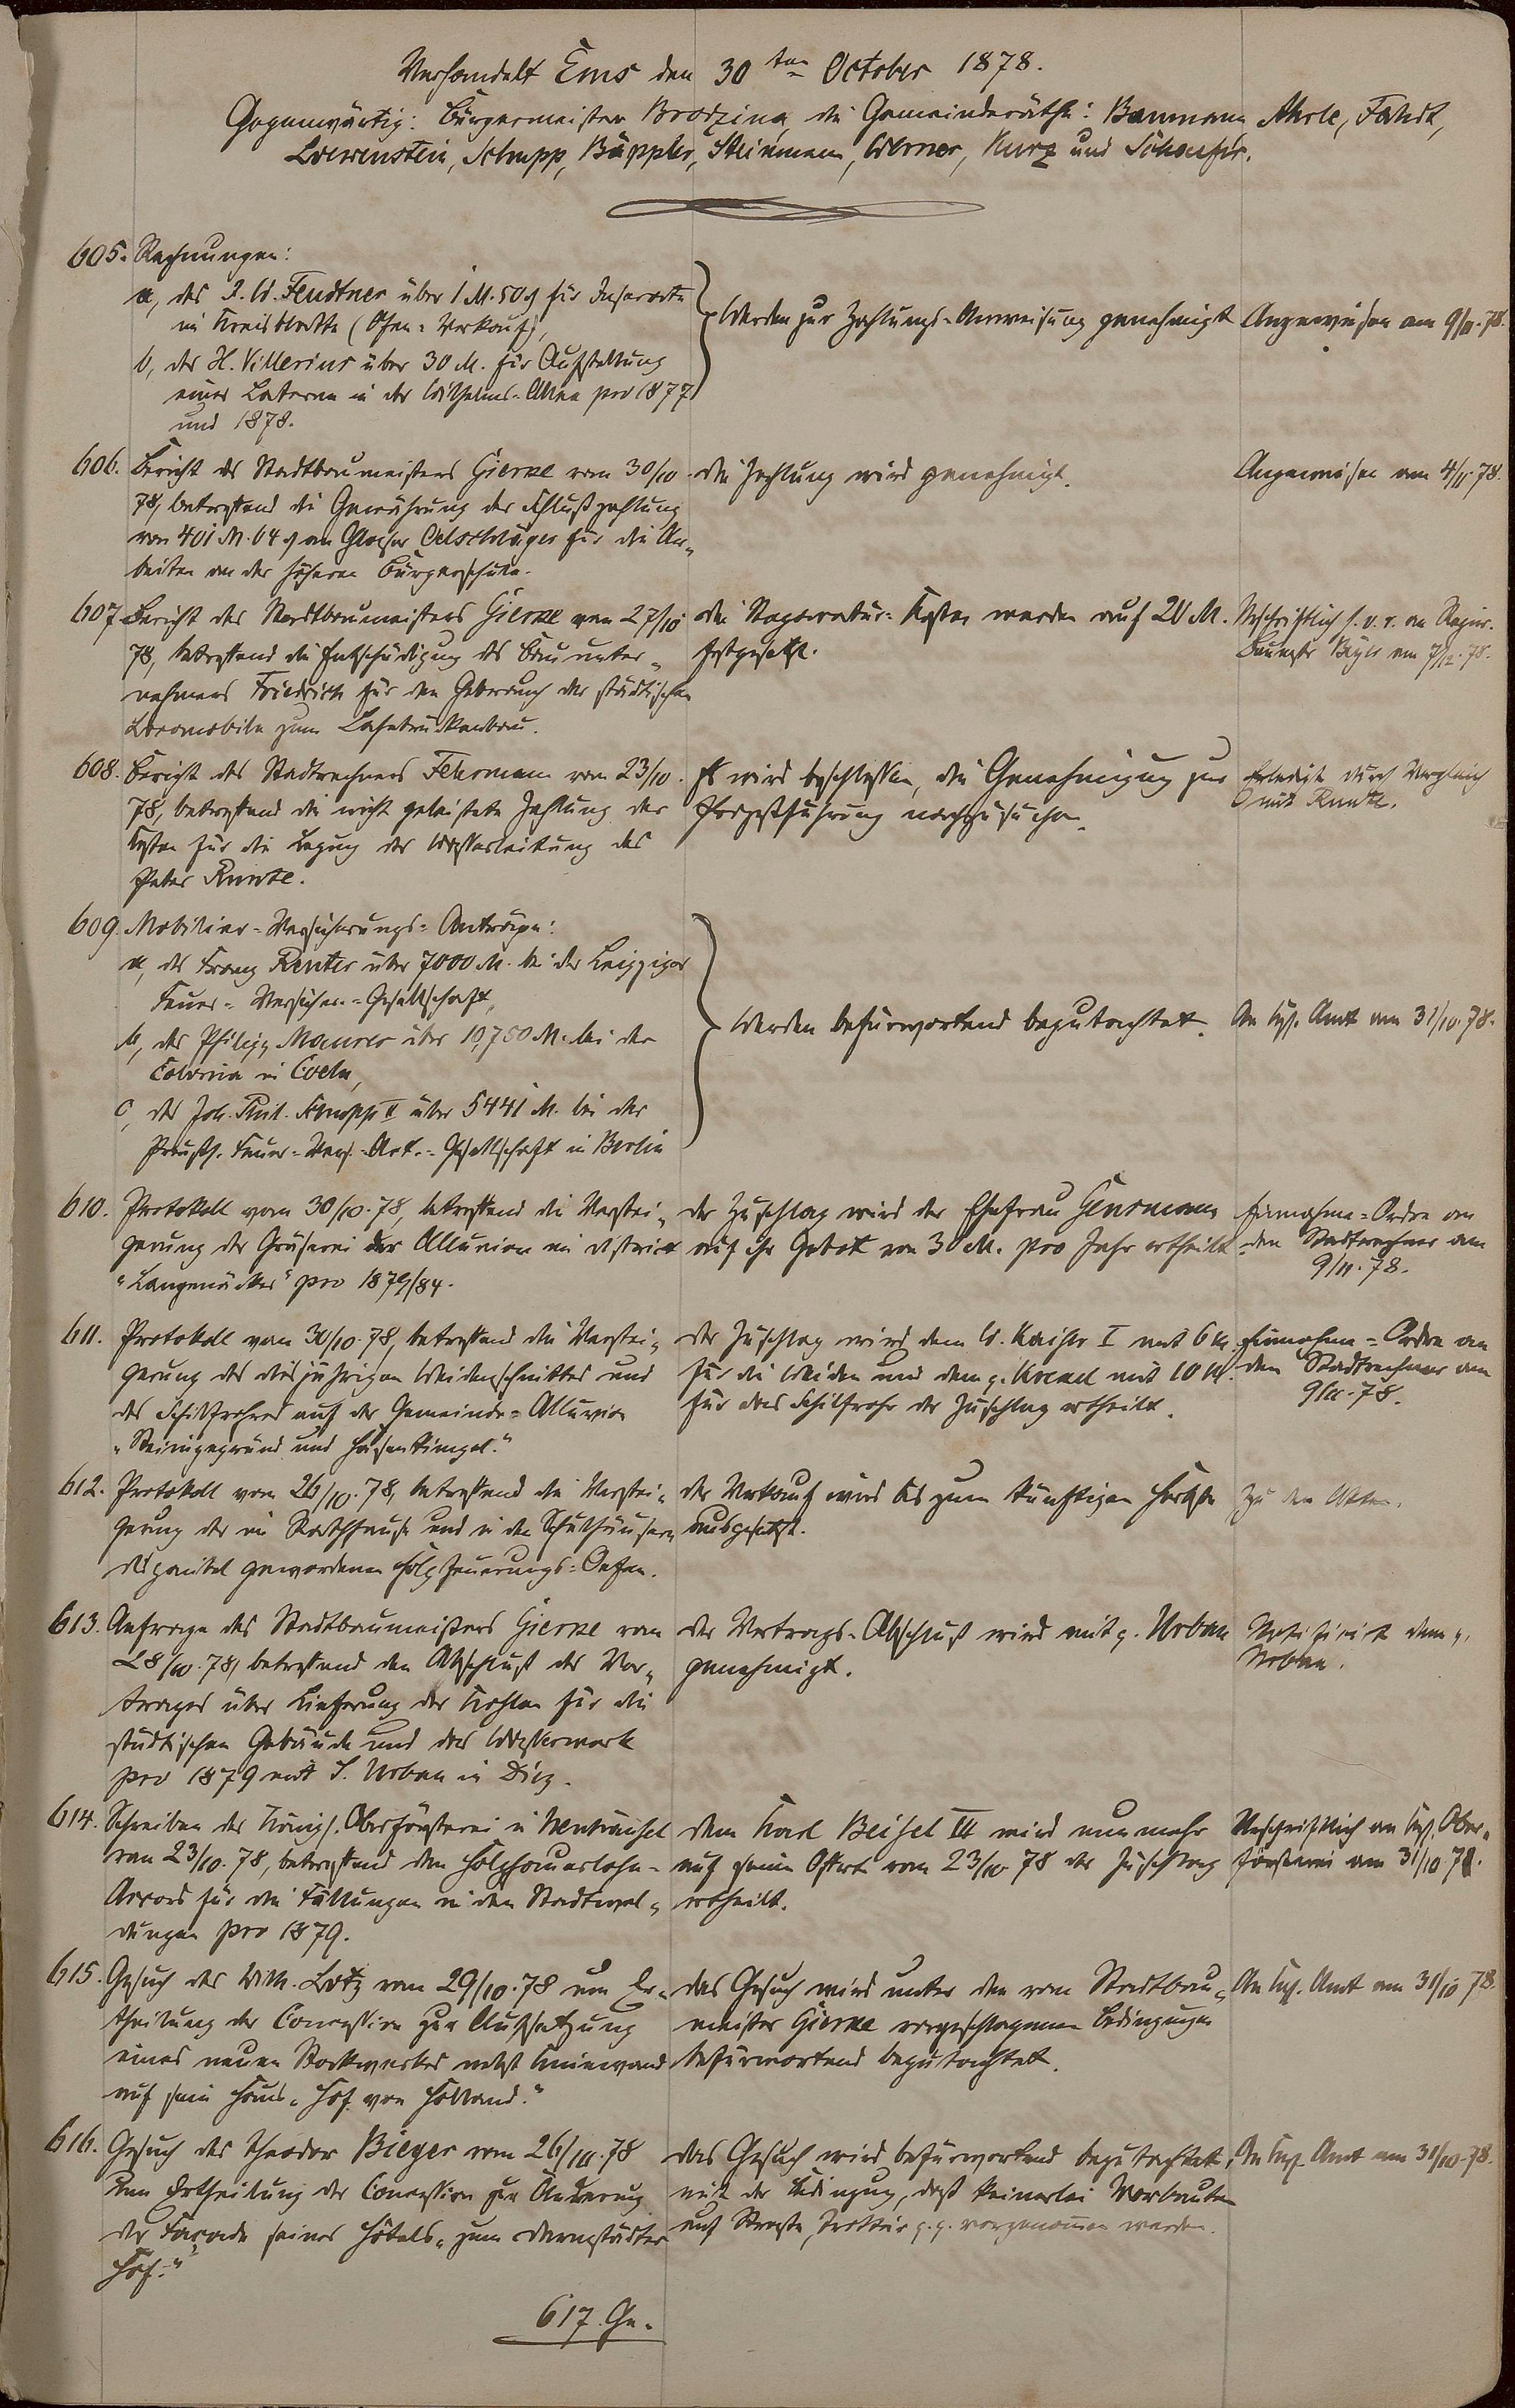 Verhandelt Ems den 30ten October 1878.
Gegenwärtig: Bürgermeister Brodzina, die Gemeinderäthe: Baumann, Ahrle, Fahdt,
Loewenstein, Schupp, Bäppler, Steinmann, Werner, Kurz und
605. Rechnungen:
a, des L. W. Feudtner über 1 M. 50 ₰ für Inserate
im Kreisblatte (Ofen-Verkauf),
b, der H. Villerius über 30 M. für Aufstellung
einer Laterne in der Wilhelms-Allee pro 1877
und 1878.
Werden zur Zahlungs-Anweisung genehmigt
Angewiesen am 9/11. 78.
606. Bericht des Stadtbaumeisters Gierke vom 30/10.
78, betreffend die Gewährung der Schlußzahlung
von 401 M. 64 ₰ an Glaser Oelschläger für die Ar„
beiten an der höheren Bürgerschule.
die Zahlung wird genehmigt.
Angewiesen am 4/11 78.
607. Bericht des Stadtbaumeisters Gierke vom 27/10
78, betreffend die Entschädigung des Bauunter„
nehmers Friedrich für den Gebrauch der städtischen
Locomobile zum Lahnbrückenbau.
die Reparatur-Kosten werden auf 20 M.
festgesetzt.
Urschriftlich s. v. r. an
am 7/12. 78.
608. Bericht des Stadtrechners Fehrmann vom 23/10.
78, betreffend die nicht geleistete Zahlung der
Kosten für die Legung der Wasserleitung des
Peter
Es wird beschlossen, die Genehmigung zur
Prozeßführung nachzusuchen.
Erledigt durch Vergleich
mit
609. Mobiliar-Versicherungs-Anträge:
a, des Franz Reuter über 7000 M. bei der Leipziger
Feuer-Versicher.-Gesellschaft,
b, des Philipp Maurer über 10,750 M. bei der
Colonia in Coeln,
c, des Joh. Phil. Schupp II über 5441 M. bei der
Preuß. Feuer-Vers.-Act.-Gesellschaft in Berlin
Werden befürwortend begutachtet.
An Kgl. Amt am 31/10. 78.
610. Protokoll vom 30/10. 78, betreffend die Verstei„
gerung der Gräserei der Alluvion im District
„Langenäcker" pro 1879/84.
der Zuschlag wird der Ehefrau
auf ihr Gebot von 30 M. pro Jahr ertheilt.
Einnahme-Ordre an
den Stadtrechner am
9/11. 78.
611. Protokoll vom 30/10. 78, betreffend die Verstei„
gerung des diesjährigen Weidenschnittes und
des Schilfrohres auf der Gemeinde-Alluvion
und
der Zuschlag wird dem W. Kaiser I mit 6 M.
für die Weiden und dem p. mit 10 M.
für das Schilfrohr der Zuschlag ertheilt.
Einnahme-Ordre an
den Stadtrechner am
9/11. 78.
612. Protokoll vom 26/10. 78, betreffend die Verstei„
gerung der im Rathhause und in den Schulhäusern
disponibel gewordenen Holzfeuerungs-Oefen.
der Verkauf wird bis zum künftigen Herbste
ausgesetzt.
Zu den Akten.
613. Anfrage des Stadtbaumeisters Gierke vom
28/10. 78, betreffend den Abschluß des Ver„
trages über Lieferung der Kohlen für die
städtischen Gebäude und das Wasserwerk
pro 1879 mit S. Urban in Diez.
der Vertrags-Abschluß wird mit p. Urban
genehmigt.
Notificirt dem p.
Urban.
614. Schreiben der Königl. Oberförsterei in Neuhäusel
vom 23/10. 78, betreffend den Holzhauerlohn-
Accord für die Fällungen in den Stadtwal„
dungen pro 1879.
dem Karl Beisel III wird nunmehr
auf seine Offerte vom 23/10. 78 der Zuschlag
ertheilt.
Urschriftlich an Kgl. Ober„
försterei am 31/10 78.
615. Gesuch des Wilh. Lotz vom 29/10. 78 um Er„
theilung der Concession zur Aufsetzung
eines neuen Stockwerkes nebst Kniewand
auf sein Haus „Hof von Holland."
das Gesuch wird unter den vom Stadtbau„
meister Gierke vorgeschlagenen Bedingungen
befürwortend begutachtet.
An Kgl. Amt am 31/10 78.
616. Gesuch des Theodor Bieger vom 26/10. 78
um Ertheilung der Concession zur Änderung
der Façade seines Hôtels „zum Darmstädter
Hof."
das Gesuch wird befürwortend begutachtet,
mit der Bedingung, daß keinerlei Vorbauten
auf Straße, Trottoir p. p. vorgenommen werden.
An Kgl. Amt am 31/10. 78.
617. Ge-